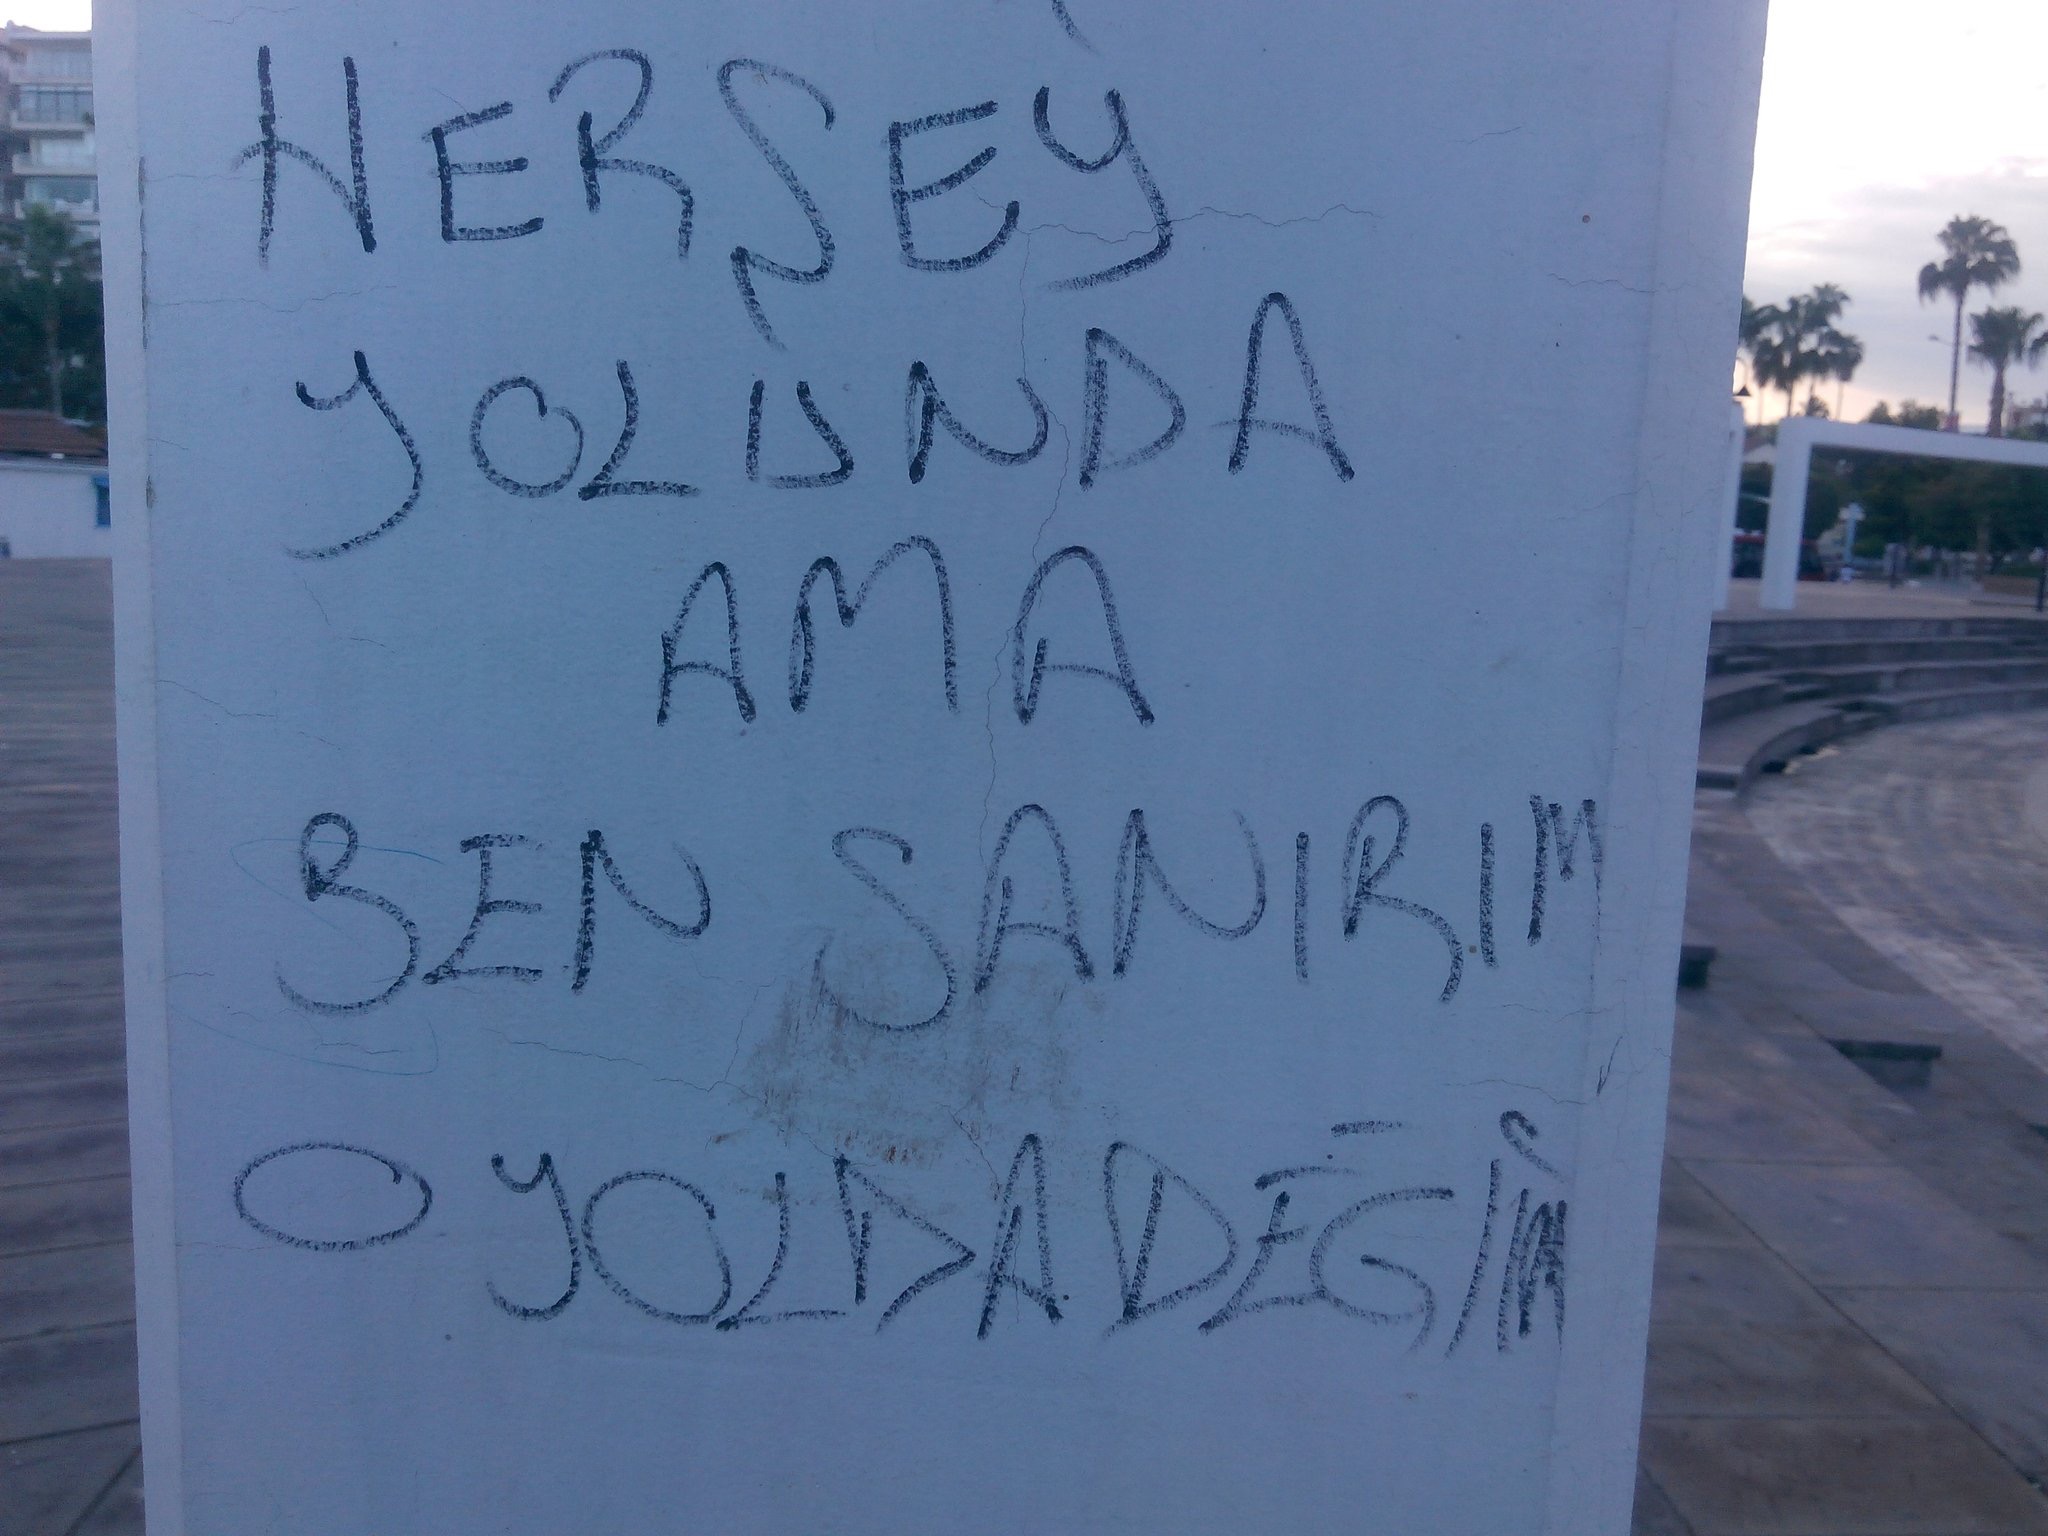 HERŞEY
YOLUNDA
AMA
BEN SANIRIM
O YOLDA DEĞİM